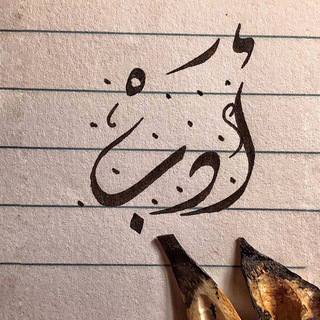 أدب